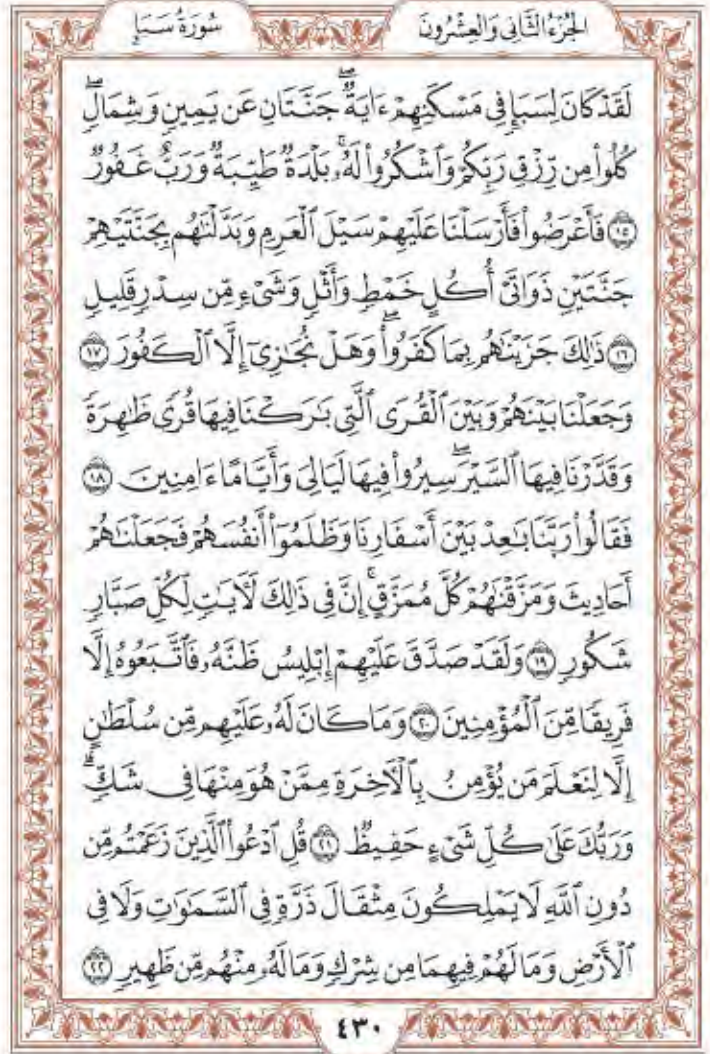 الجُزْءُ الثَّانِي وَالعِشْرُونَ سُورَةُ سَبَإٍ
لَقَدْ كَانَ لِسَبَإٍ فِي مَسْكَنِهِمْ ءَايَةٌۖ جَنَّتَانِ عَن يَمِينٍ وَشِمَالٍۖ
كُلُوا۟ مِن رِّزْقِ رَبِّكُمْ وَٱشْكُرُوا۟ لَهُۥۚ بَلْدَةٌ طَيِّبَةٌ وَرَبٌّ غَفُورٌ
۝١٥ فَأَعْرَضُوا۟ فَأَرْسَلْنَا عَلَيْهِمْ سَيْلَ ٱلْعَرِمِ وَبَدَّلْنَٰهُم بِجَنَّتَيْهِمْ
جَنَّتَيْنِ ذَوَاتَىْ أُكُلٍ خَمْطٍ وَأَثْلٍ وَشَىْءٍ مِّن سِدْرٍ قَلِيلٍ
۝١٦ ذَٰلِكَ جَزَيْنَٰهُم بِمَا كَفَرُوا۟ۖ وَهَلْ نُجَٰزِىٓ إِلَّا ٱلْكَفُورَ ۝١٧
وَجَعَلْنَا بَيْنَهُمْ وَبَيْنَ ٱلْقُرَى ٱلَّتِى بَٰرَكْنَا فِيهَا قُرًى ظَٰهِرَةً
وَقَدَّرْنَا فِيهَا ٱلسَّيْرَۖ سِيرُوا۟ فِيهَا لَيَالِىَ وَأَيَّامًا ءَامِنِينَ ۝١٨
فَقَالُوا۟ رَبَّنَا بَٰعِدْ بَيْنَ أَسْفَارِنَا وَظَلَمُوٓا۟ أَنفُسَهُمْ فَجَعَلْنَٰهُمْ
أَحَادِيثَ وَمَزَّقْنَٰهُمْ كُلَّ مُمَزَّقٍۚ إِنَّ فِى ذَٰلِكَ لَءَايَٰتٍ لِّكُلِّ صَبَّارٍ
شَكُورٍ ۝١٩ وَلَقَدْ صَدَّقَ عَلَيْهِمْ إِبْلِيسُ ظَنَّهُۥ فَٱتَّبَعُوهُ إِلَّا
فَرِيقًا مِّنَ ٱلْمُؤْمِنِينَ ۝٢٠ وَمَا كَانَ لَهُۥ عَلَيْهِم مِّن سُلْطَٰنٍ
إِلَّا لِنَعْلَمَ مَن يُؤْمِنُ بِٱلْءَاخِرَةِ مِمَّنْ هُوَ مِنْهَا فِى شَكٍّۗ
وَرَبُّكَ عَلَىٰ كُلِّ شَىْءٍ حَفِيظٌ ۝٢١ قُلِ ٱدْعُوا۟ ٱلَّذِينَ زَعَمْتُم مِّن
دُونِ ٱللَّهِ لَا يَمْلِكُونَ مِثْقَالَ ذَرَّةٍ فِى ٱلسَّمَٰوَٰتِ وَلَا فِى
ٱلْأَرْضِ وَمَا لَهُمْ فِيهِمَا مِن شِرْكٍ وَمَا لَهُۥ مِنْهُم مِّن ظَهِيرٍ ۝٢٢
٤٣٠